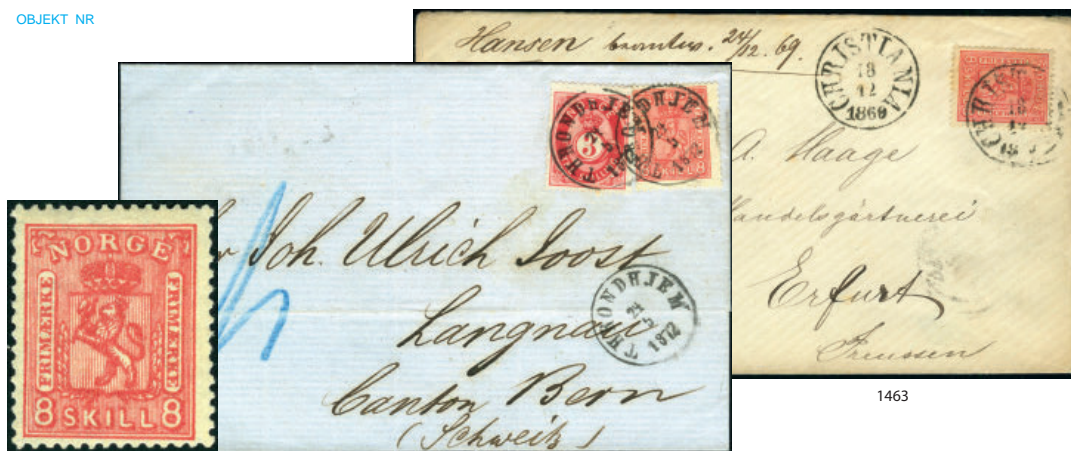 OBJEKT NR
Hansen 24/12. 69.
CHRISTIANIA
18
12
1869
A. Haage
Handelsgärtnerei
Erfurt
Preussen
1463
THRONDHJEM
3
8 8
Joh. Ulrich Joost
Langnau
Canton Bern
(Schweiz)
THRONDHJEM
24
5
1872
NORGE
FRIMÆRKE FRIMÆRKE
8 SKILL 8